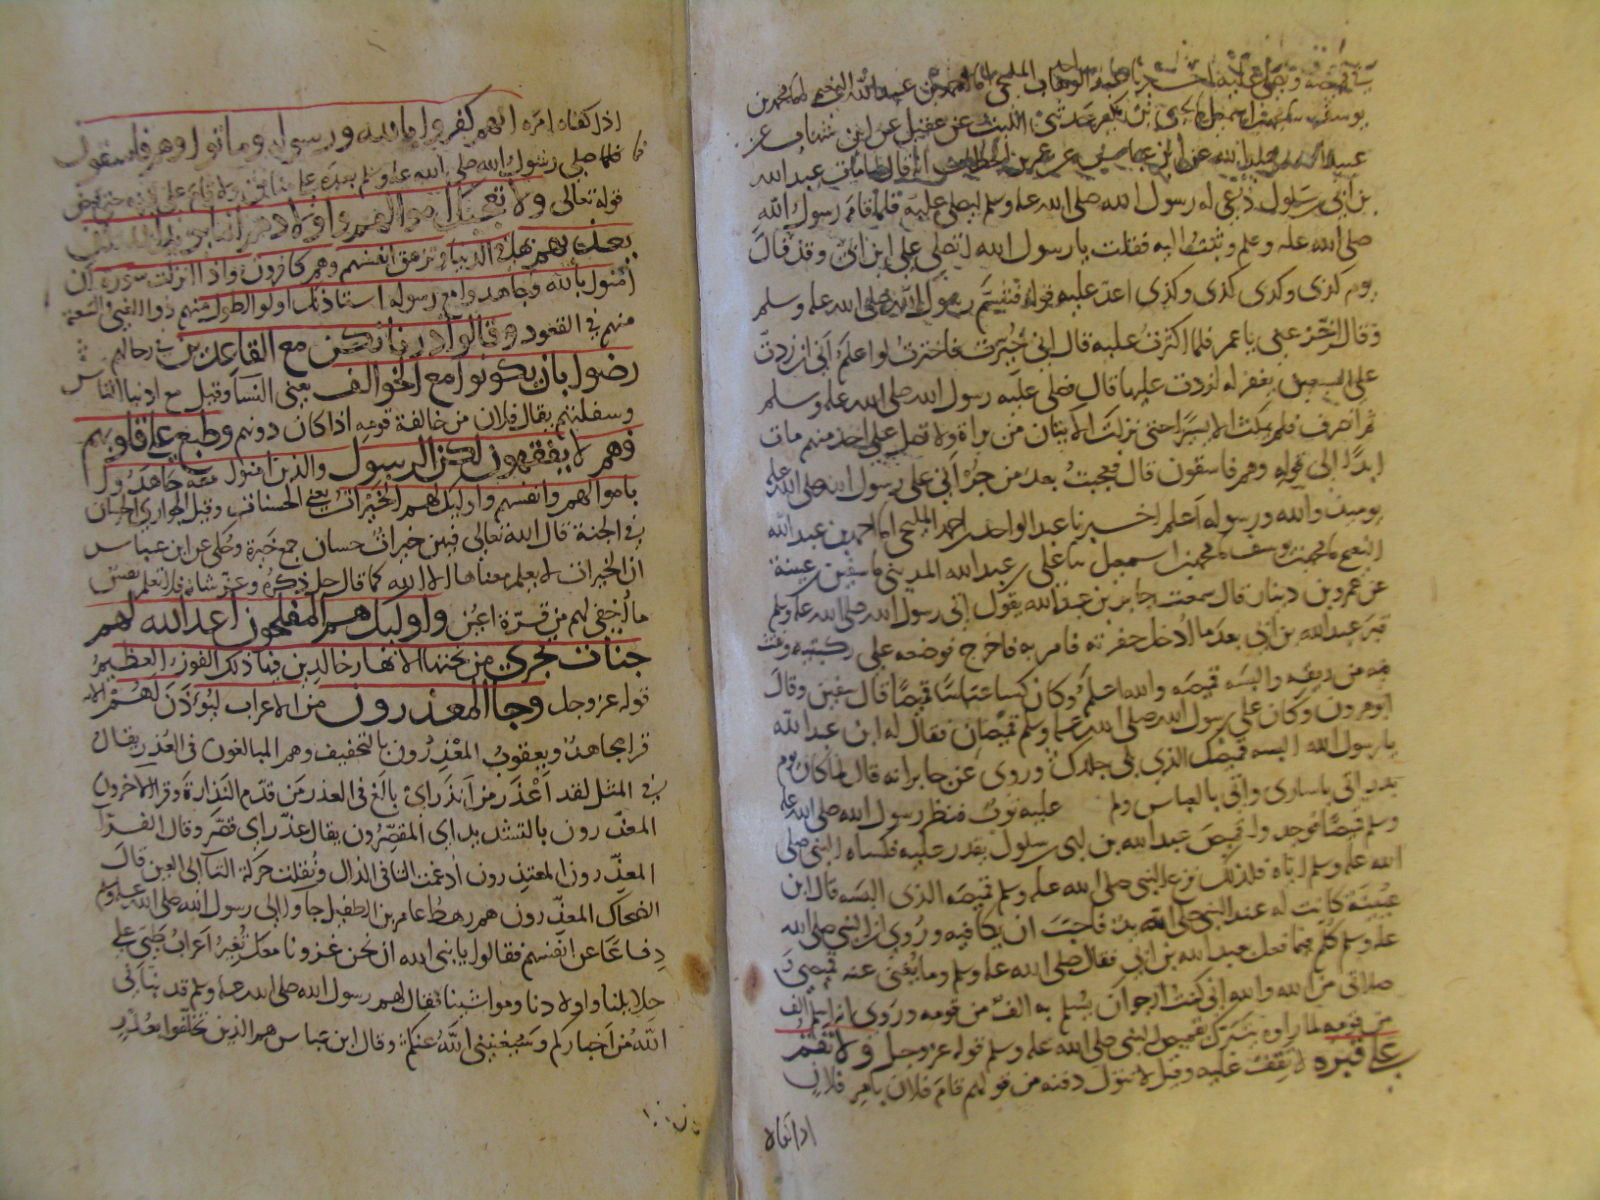 عليه اخبرنا عبد الواحد المليحي انا احمد بن عبد الله النعيمي انا محمد بن
يوسف ثنا محمد بن اسمعيل ثنا يحيى بن بكير حدثني الليث عن عقيل عن ابن شهاب عن
عبيد الله بن عبد الله عن ابن عباس عن عمر بن الخطاب انه قال لما مات عبد الله
بن ابي سلول دعي له رسول الله صلى الله عليه وسلم ليصلي عليه فلما قام رسول الله
صلى الله عليه وسلم وثبت اليه فقلت يا رسول الله اتصلي على ابن ابي وقد قال
يوم كذى وكذى كذى وكذى اعدد عليه قوله فتبسم رسول الله صلى الله عليه وسلم
وقال اخر عني يا عمر فلما اكثرت عليه قال اني خيرت فاخترت لو اعلم اني ان زدت
على السبعين يغفر له لزدت عليها قال فصلى عليه رسول الله صلى الله عليه وسلم
ثم انصرف فلم يمكث الا يسيرا حتى نزلت الايتان من براة ولا تصل على احد منهم مات
ابدا الى قوله وهم فاسقون قال فعجبت بعد من جرأتي على رسول الله صلى الله عليه
يومئذ والله ورسوله اعلم اخبرنا عبد الواحد بن احمد المليحي انا احمد بن عبد الله
النعيمي انا محمد بن يوسف انا محمد بن اسمعيل ثنا علي بن عبد الله المديني ثنا سفين بن عيينة
عن عمرو بن دينار قال سمعت جابر بن عبد الله يقول اتى رسول الله صلى الله عليه وسلم
قبر عبد الله بن ابي بعد ما ادخل حفرته فامر به فاخرج فوضعه على ركبتيه ونفث
فيه من ريقه والبسه قميصه والله اعلم وكان كسا عباسا قميصا قال سفين وقال
ابو هرون وكان على رسول الله صلى الله عليه وسلم قميصان فقال له ابن عبد الله
يا رسول الله البسه قميصك الذي يلي جلدك وروى عن جابر انه قال لما كان يوم
بدر اتى باسارى واتى بالعباس ولم عليه ثوب فنظر رسول الله صلى الله عليه
وسلم قميصا فوجدوا قميص عبد الله بن ابي سلول يقدر عليه فكساه النبي صلى
الله عليه وسلم اياه فلذلك نزع النبي صلى الله عليه وسلم قميصه الذي البسه قال ابن
عيينة كانت له عند النبي صلى الله يد فاحب ان يكافيه وروي ان النبي صلى الله
عليه وسلم كلم فيما فعل بعبد الله بن ابي فقال صلى الله عليه وسلم وما يغني عنه قميصي و
صلاتي من الله والله اني كنت ارجو ان يسلم به الف من قومه وروى انه اسلم الف
من قومه لما راوه يتبرك بقميص النبي صلى الله عليه وسلم قوله عز وجل ولا تقم
على قبره لا تقف عليه وقيل لا تتول دفنه من قولهم قام فلان بامر فلان
اذا كفاه
اذا كفاه امره انهم كفروا بالله ورسوله وماتوا وهم فاسقون
فما صلى رسول الله صلى الله عليه وسلم بعده على منافق ولا قام على قبره حتى قبض
قوله تعالى ولا تعجبك اموالهم واولادهم انما يريد الله ان
يعذبهم بها في الدنيا وتزهق انفسهم وهم كافرون واذا انزلت سورة ان
امنوا بالله وجاهدوا مع رسوله استاذنك اولوا الطول منهم ذوا الغنى والسعة
منهم في القعود وقالوا ذرنا نكن مع القاعدين في رحالهم
رضوا بان يكونوا مع الخوالف يعني النسا وقيل مع ادنيا الناس
وسفلتهم يقال فلان من خالفة قومه اذا كان دونهم وطبع على قلوبهم
فهم لا يفقهون لكن الرسول والذين امنوا معه جاهدوا
باموالهم وانفسهم واوليك لهم الخيرات يعني الحسنات وقيل الجواري الحسان
في الجنة قال الله تعالى فيهن خيرات حسان جمع خيرة وحكي عن ابن عباس
ان الخيرات لا يعلم معناها الا الله كما قال جل ذكره وعز شانه فلا تعلم نفس
ما اخفي لهم من قرة اعين واوليك هم المفلحون اعد الله لهم
جنات تجري من تحتها الانهار خالدين فيها ذلك الفوز العظيم
قوله عز وجل وجا المعذرون من الاعراب ليؤذن لهم الاية
قرا مجاهد ويعقوب المعذرون بالتخفيف وهم المبالغون في العذر يقال
في المثل لقد اعذر من انذر اي بالغ في العذر من قدم النذارة وقرا الاخرون
المعذرون بالتشديد اي المقصرون يقال عذر اي قصر وقال الفرا
المعذرون المعتذرون ادغمت التا في الذال ونقلت حركة التا الى العين قال
الضحاك المعذرون هم رهط عامر بن الطفيل جاوا الى رسول الله صلى الله عليه وسلم
دفاعا عن انفسهم فقالوا يا نبي الله ان نحن غزونا معك تغير اعراب طيي على
حلايلنا واولادنا ومواشينا فقال لهم رسول الله صلى الله عليه وسلم قد نباني
الله من اخباركم وسيغنيني الله عنكم وقال ابن عباس هم الذين تخلفوا بعذر